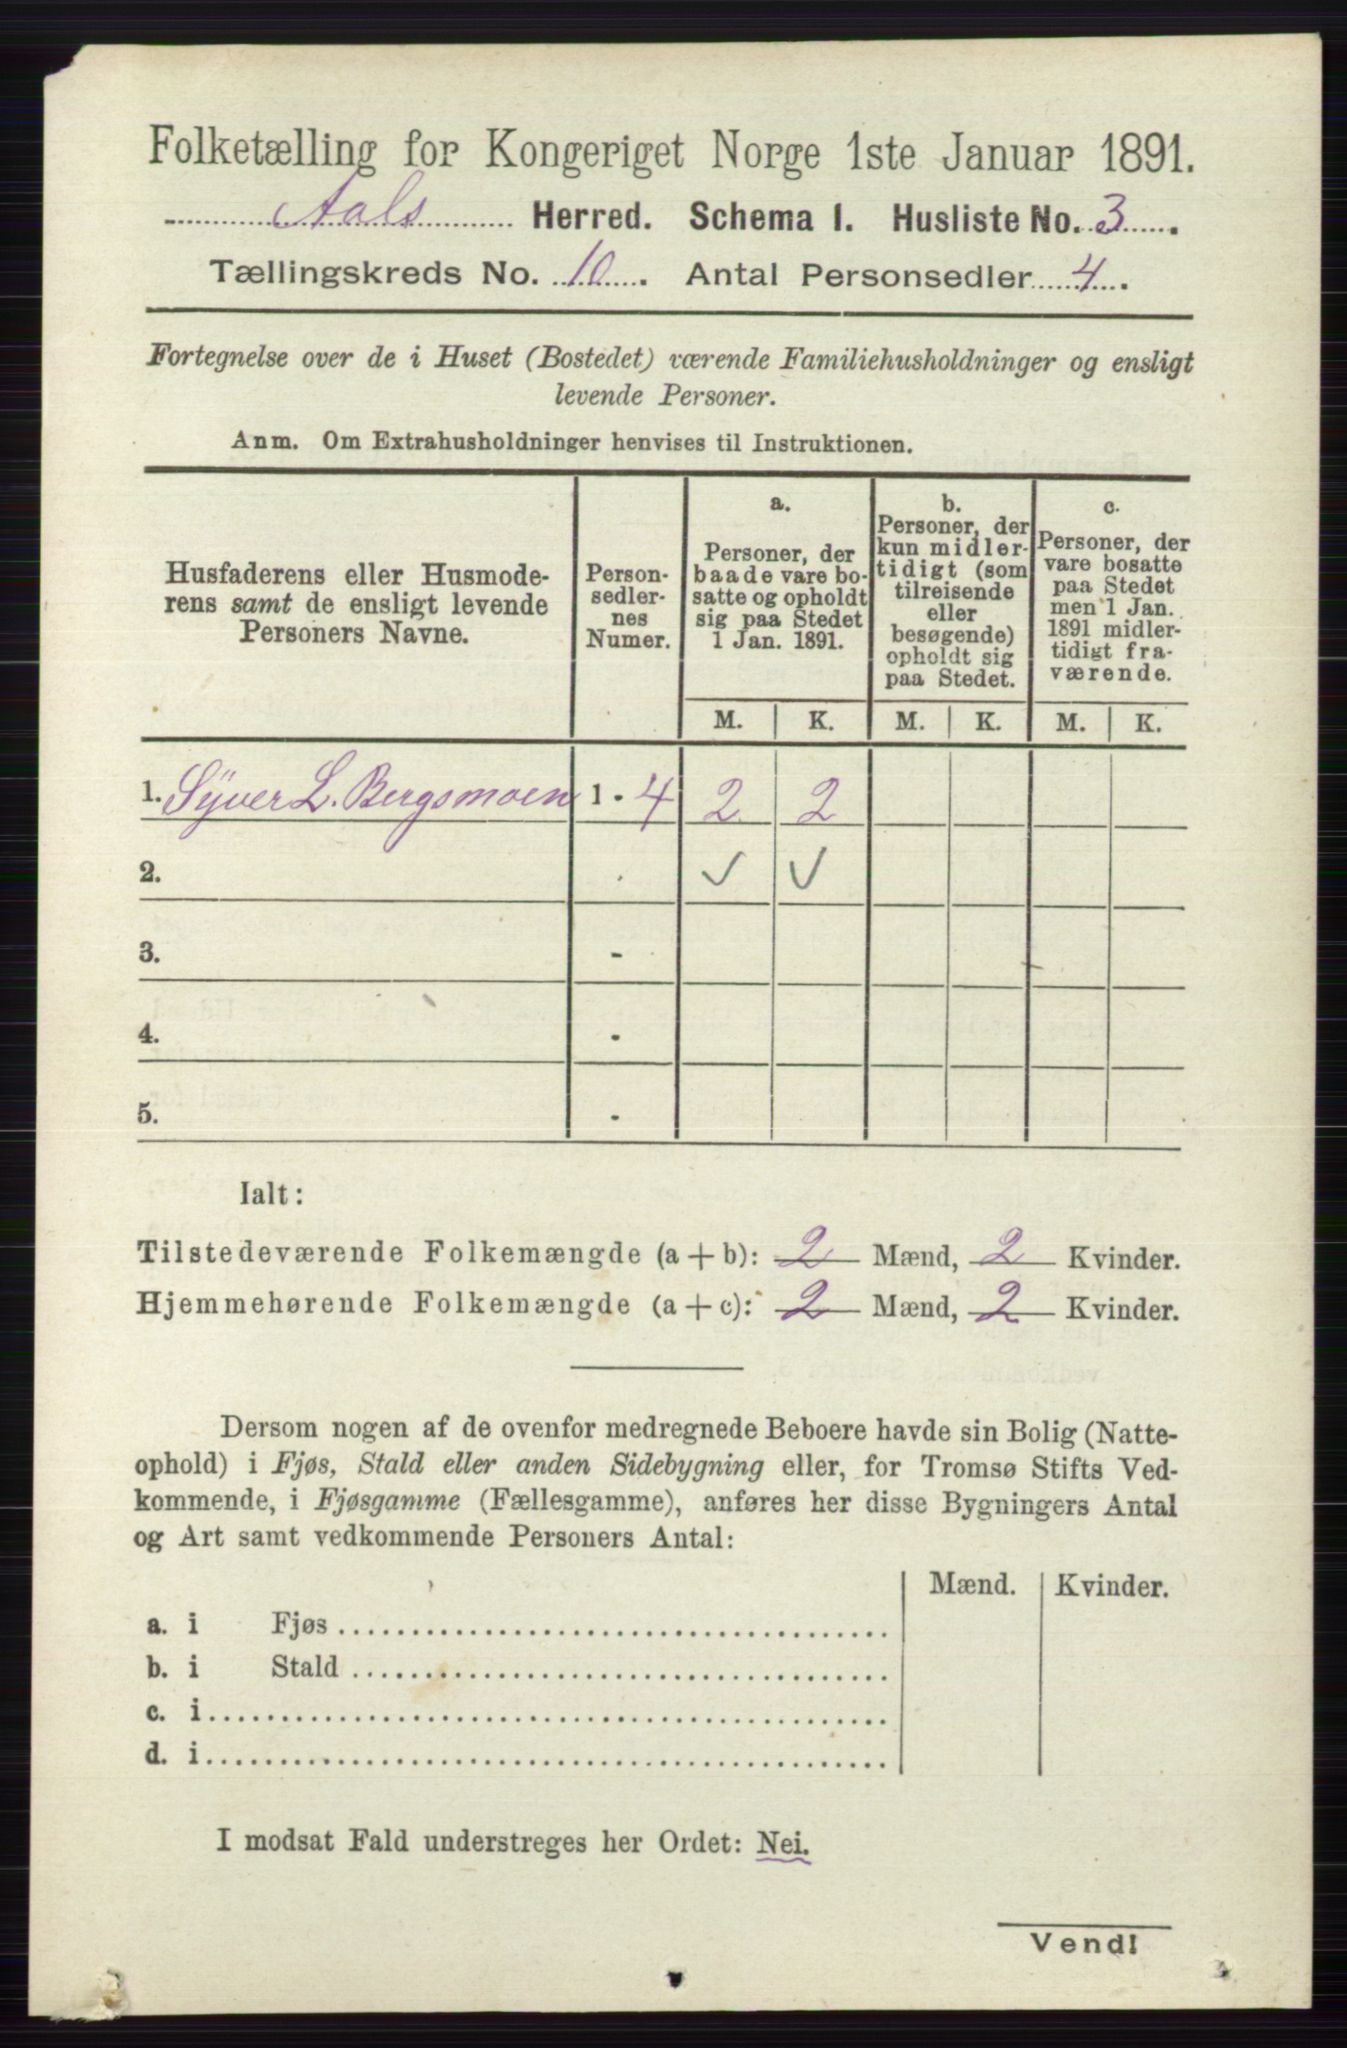 Folketælling for Kongeriget Norge 1ste Januar 1891.
Aals Herred. Schema I. Husliste No. 3.
Tællingskreds No. 10. Antal Personsedler 4.
Fortegnelse over de i Huset (Bostedet) værende Familiehusholdninger og ensligt
levende Personer.
Anm. Om Extrahusholdninger henvises til Instruktionen.
Husfaderens eller Husmode-
rens samt de ensligt levende
Personers Navne.
Person-
sedler-
nes
Numer.
a.
Personer, der
baade vare bo-
satte og opholdt
sig paa Stedet
1 Jan. 1891.
b.
Personer, der
kun midler-
tidigt (som
tilreisende
eller
besøgende)
opholdt sig
paa Stedet.
c.
Personer, der
vare bosatte
paa Stedet
men 1 Jan.
1891 midler-
tidigt fra-
værende.
M. K. M. K. M. K.
1. Syver L. Bergsmoen 1 - 4 2 2
2. - ✓ ✓
3. -
4. -
5. -
Ialt:
Tilstedeværende Folkemængde (a + b): 2 Mænd, 2 Kvinder.
Hjemmehørende Folkemængde (a + c): 2 Mænd, 2 Kvinder.
Dersom nogen af de ovenfor medregnede Beboere havde sin Bolig (Natte-
ophold) i Fjøs, Stald eller anden Sidebygning eller, for Tromsø Stifts Ved-
kommende, i Fjøsgamme (Fællesgamme), anføres her disse Bygningers Antal
og Art samt vedkommende Personers Antal:
Mænd. Kvinder.
a. i Fjøs
b. i Stald
c. i
d. i
I modsat Fald understreges her Ordet: Nei.
Vend!